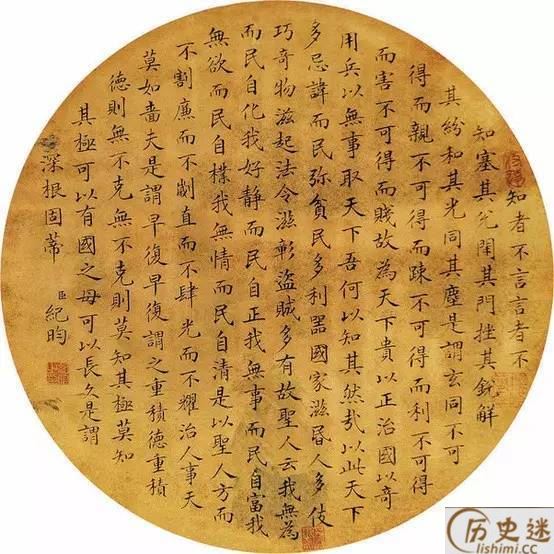 知者不言言者不
知塞其兌閉其門挫其銳解
其紛和其光同其塵是謂玄同不可
得而親不可得而踈不可得而利不可得
而害不可得而賤故為天下貴以正治國以奇
用兵以無事取天下吾何以知其然哉以此天下
多忌諱而民弥貧民多利器國家滋昏人多伎
巧奇物滋起法令滋彰盜賊多有故聖人云我無為
而民自化我好静而民自正我無事而民自富我
無欲而民自樸我無情而民自清是以聖人方而
不割廉而不劌直而不肆光而不耀治人事天
莫如嗇夫是謂早復早復謂之重積德重積
德則無不克無不克則莫知其極莫知
其極可以有國之母可以長久是謂
深根固蒂
臣紀昀
历史迷
lishimi.cc